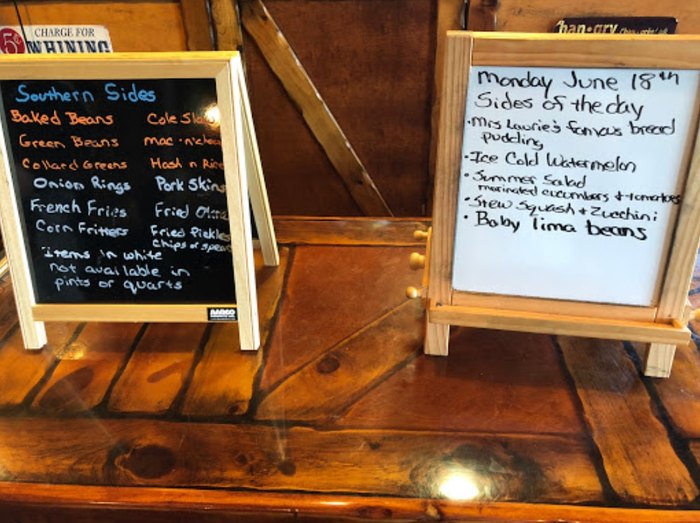 5¢ CHARGE FOR
WHINING
han·gry
Southern Sides
Baked Beans Cole Slaw
Green Beans mac·n·chee
Collard Greens Hash n Rice
Onion Rings Pork Skins
French Fries Fried Okra
Corn Fritters Fried Pickles
chips or spears
Items in white
not available in
pints or quarts
Monday June 18th
Sides of the day
·Mrs Laurie's famous bread
pudding
·Ice Cold Watermelon
·Summer Salad
marinated cucumbers + tomatoes
·Stew Squash + Zucchini
·Baby lima beans